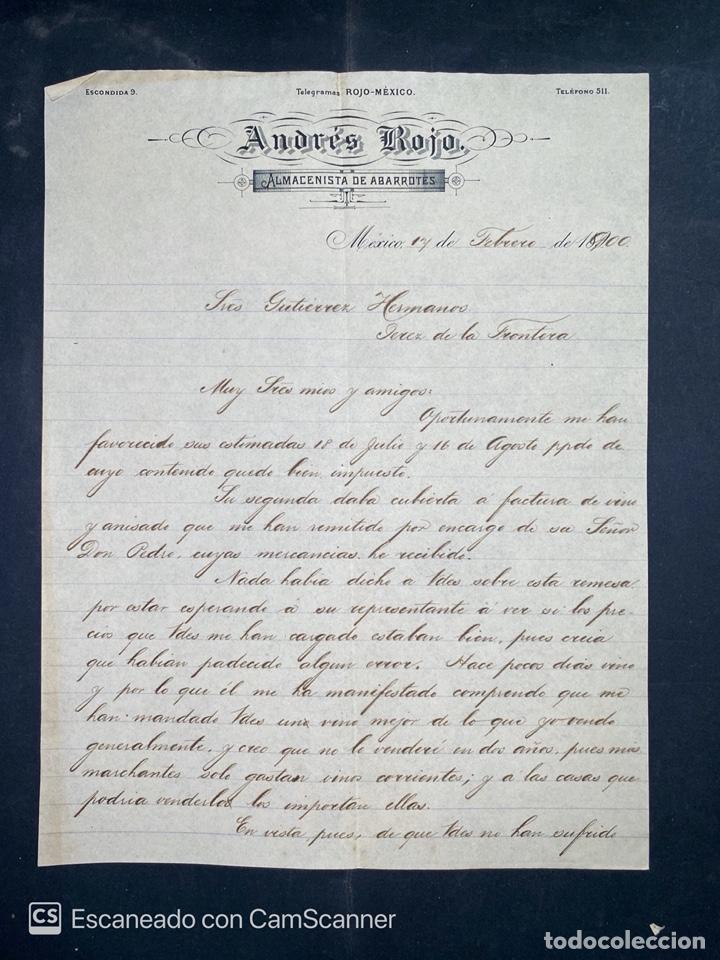 Escondida 9. Telegramas ROJO-MÉXICO. Teléfono 511.
Andrés Rojo.
ALMACENISTA DE ABARROTES
México, 17 de Febrero de 1900.
Sres Gutierrez Hermanos
Jerez de la Frontera
Muy Sres mios y amigos:
Oportunamente me han
favorecido sus estimadas 18 de Julio y 16 de Agosto ppdo de
cuyo contenido quedo bien impuesto.
Su segunda daba cubierta á factura de vino
y anisado que me han remitido por encargo de su Señor
Don Pedro, cuyas mercancias he recibido.
Nada habia dicho a Vdes sobre esta remesa
por estar esperando á su representante á ver si los pre-
cios que Vdes me han cargado estaban bien, pues creia
que habian padecido algun error. Hace pocos dias vino
y por lo que él me ha manifestado comprendo que me
han mandado Vdes un vino mejor de lo que yo vendo
generalmente, y creo que no lo venderé en dos años, pues mis
marchantes solo gastan vinos corrientes; y á las casas que
podria venderlos los importan ellas.
En vista pues, de que Vdes no han sufrido
CS Escaneado con CamScanner
todocoleccion